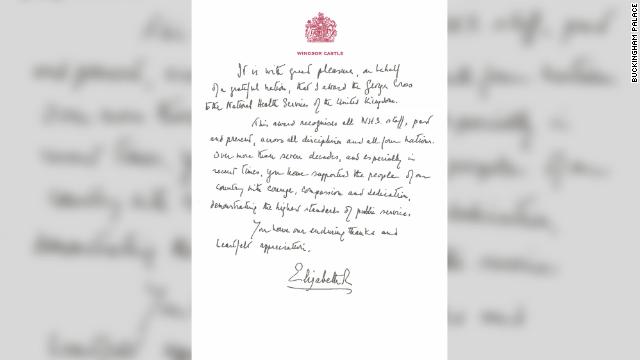 WINDSOR CASTLE
It is with great pleasure, on behalf
of a grateful nation, that I award the George Cross
to the National Health Services of the United Kingdom.
This award recognises all NHS staff, past
and present, across all disciplines and all four nations.
Over more than seven decades, and especially in
recent times, you have supported the people of our
country with courage, compassion and dedication,
demonstrating the highest standards of public service.
You have our enduring thanks and
heartfelt appreciation.
Elizabeth R
BUCKINGHAM PALACE